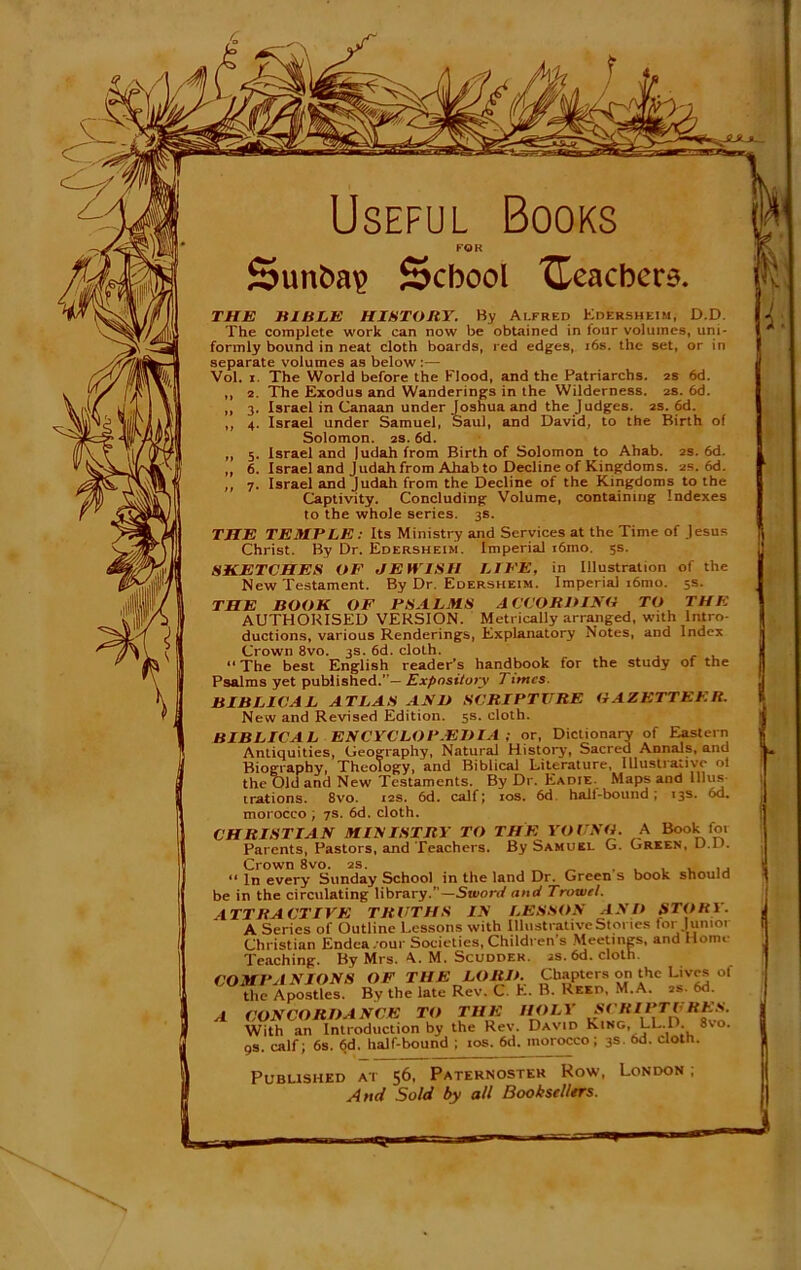 USEFUL BOOKS
FOR
Sunday School Teachers.
THE BIBLE HISTORY. By ALFRED EDERSHEIM, D.D.
The complete work can now be obtained in four volumes, uni-
formly bound in neat cloth boards, red edges, 16s. the set, or in
separate volumes as below:—
Vol. 1. The World before the Flood, and the Patriarchs. 2s 6d.
,, 2. The Exodus and Wanderings in the Wilderness. 2s. 6d.
,, 3. Israel in Canaan under Joshua and the Judges. 2s. 6d.
,, 4. Israel under Samuel, Saul, and David, to the Birth of
Solomon. 2s. 6d.
,, 5. Israel and Judah from Birth of Solomon to Ahab. 2s. 6d.
,, 6. Israel and Judah from Ahab to Decline of Kingdoms. 2s. 6d.
,, 7. Israel and Judah from the Decline of the Kingdoms to the
Captivity. Concluding Volume, containing Indexes
to the whole series. 3s.
THE TEMPLE: Its Ministry and Services at the Time of Jesus
Christ. By Dr. EDERSHEIM. Imperial 16mo. 5s.
SKETCHES OF JEWISH LIFE, in Illustration of the
New Testament. By Dr. EDERSHEIM. Imperial 16mo. 5s.
THE BOOK OF PSALMS ACCORDING TO THE
AUTHORISED VERSION. Metrically arranged, with Intro-
ductions, various Renderings, Explanatory Notes, and Index
Crown 8vo. 3s. 6d. cloth.
"The best English reader's handbook for the study of the
Psalms yet published."—Expository Times.
BIBLICAL ATLAS AND SCRIPTURE GAZETTEER.
New and Revised Edition. 5s. cloth.
BIBLICAL ENCYCLOPÆDIA; or, Dictionary of Eastern
Antiquities, Geography, Natural History, Sacred Annals, and
Biography, Theology, and Biblical Literature, Illustrative of
the Old and New Testaments. By Dr. EADIE. Maps and Illus-
trations. 8vo. 12s. 6d. calf; 10s. 6d. half-bound; 13s. 6d.
morocco; 7s. 6d. cloth.
CHRISTIAN MINISTRY TO THE YOUNG. A Book for
Parents, Pastors, and Teachers. By SAMUEL G. GREEN, D.D.
Crown 8vo. 2s.
"In every Sunday School in the land Dr. Green's book should
be in the circulating library."—Sword and Trowel.
ATTRACTIVE TRUTHS IN LESSON AND STORY.
A Series of Outline Lessons with Illustrative Stories for Junior
Christian Endeavour Societies, Children's Meetings, and Home
Teaching. By Mrs. A. M. SCUDDER. 2s. 6d. cloth.
COMPANIONS OF THE LORD. Chapters on the Lives of
the Apostles. By the late Rev. C. E. B. REED, M.A. 2s. 6d.
A CONCORDANCE TO THE HOLY SCRIPTURES.
With an Introduction by the Rev. DAVID KING, LL.D. 8vo.
9s. calf; 6s. 6d. half-bound; 10s. 6d. morocco; 3s. 6d. cloth.
PUBLISHED AT 56, PATERNOSTER ROW, LONDON;
And Sold by all Booksellers.